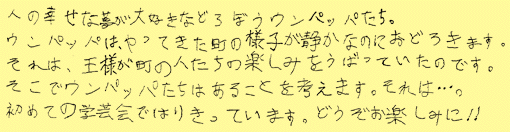 人の幸せな夢が大好きなどろぼうウンパッパたち。
ウンパッパは、やってきた町の様子が静かなのにおどろきます。
それは、王様が町の人たちの楽しみをうばっていたのです。
そこでウンパッパたちはあることを考えます。それは…。
初めての学芸会ではりきっています。どうぞお楽しみに!!